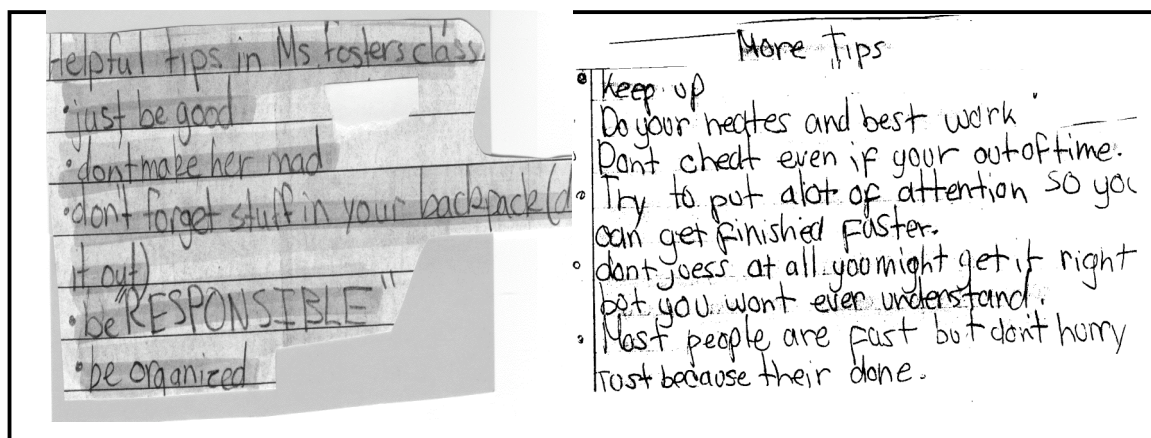 Helpful tips in Ms. Fosters class
• just be good
• dont make her mad
• don't forget stuff in your backpack (d
it out)
• be "RESPONSIBLE"
• be organized
More Tips
• Keep up
Do your neates and best work
Dont cheat even if your out of time.
• Try to put alot of attention so you
can get finished faster.
• dont guess at all you might get it right
bet you wont ever understand.
• Most people are fast but don't hurry
Just because their done.